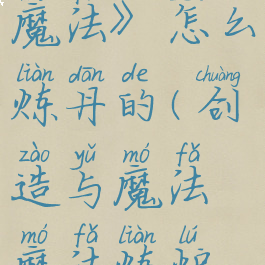 魔法》怎么
liàn dān de chuàng
炼丹的(创
zào yǔ mó fǎ
造与魔法
mó fǎ liàn lú
魔法炼炉